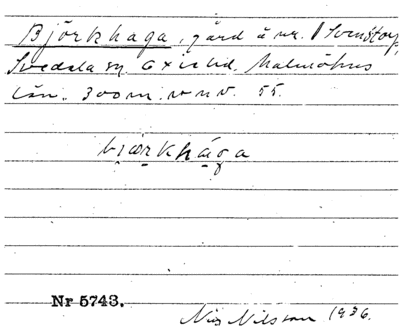 Björkhaga, gård å nr. 1 Svenstorp,
Svedala sn. Oxie hd. Malmöhus
län. 300 m. v n v. 55.
bjœrkhāga
Nr 5743.
Nils Nilsson 1936.